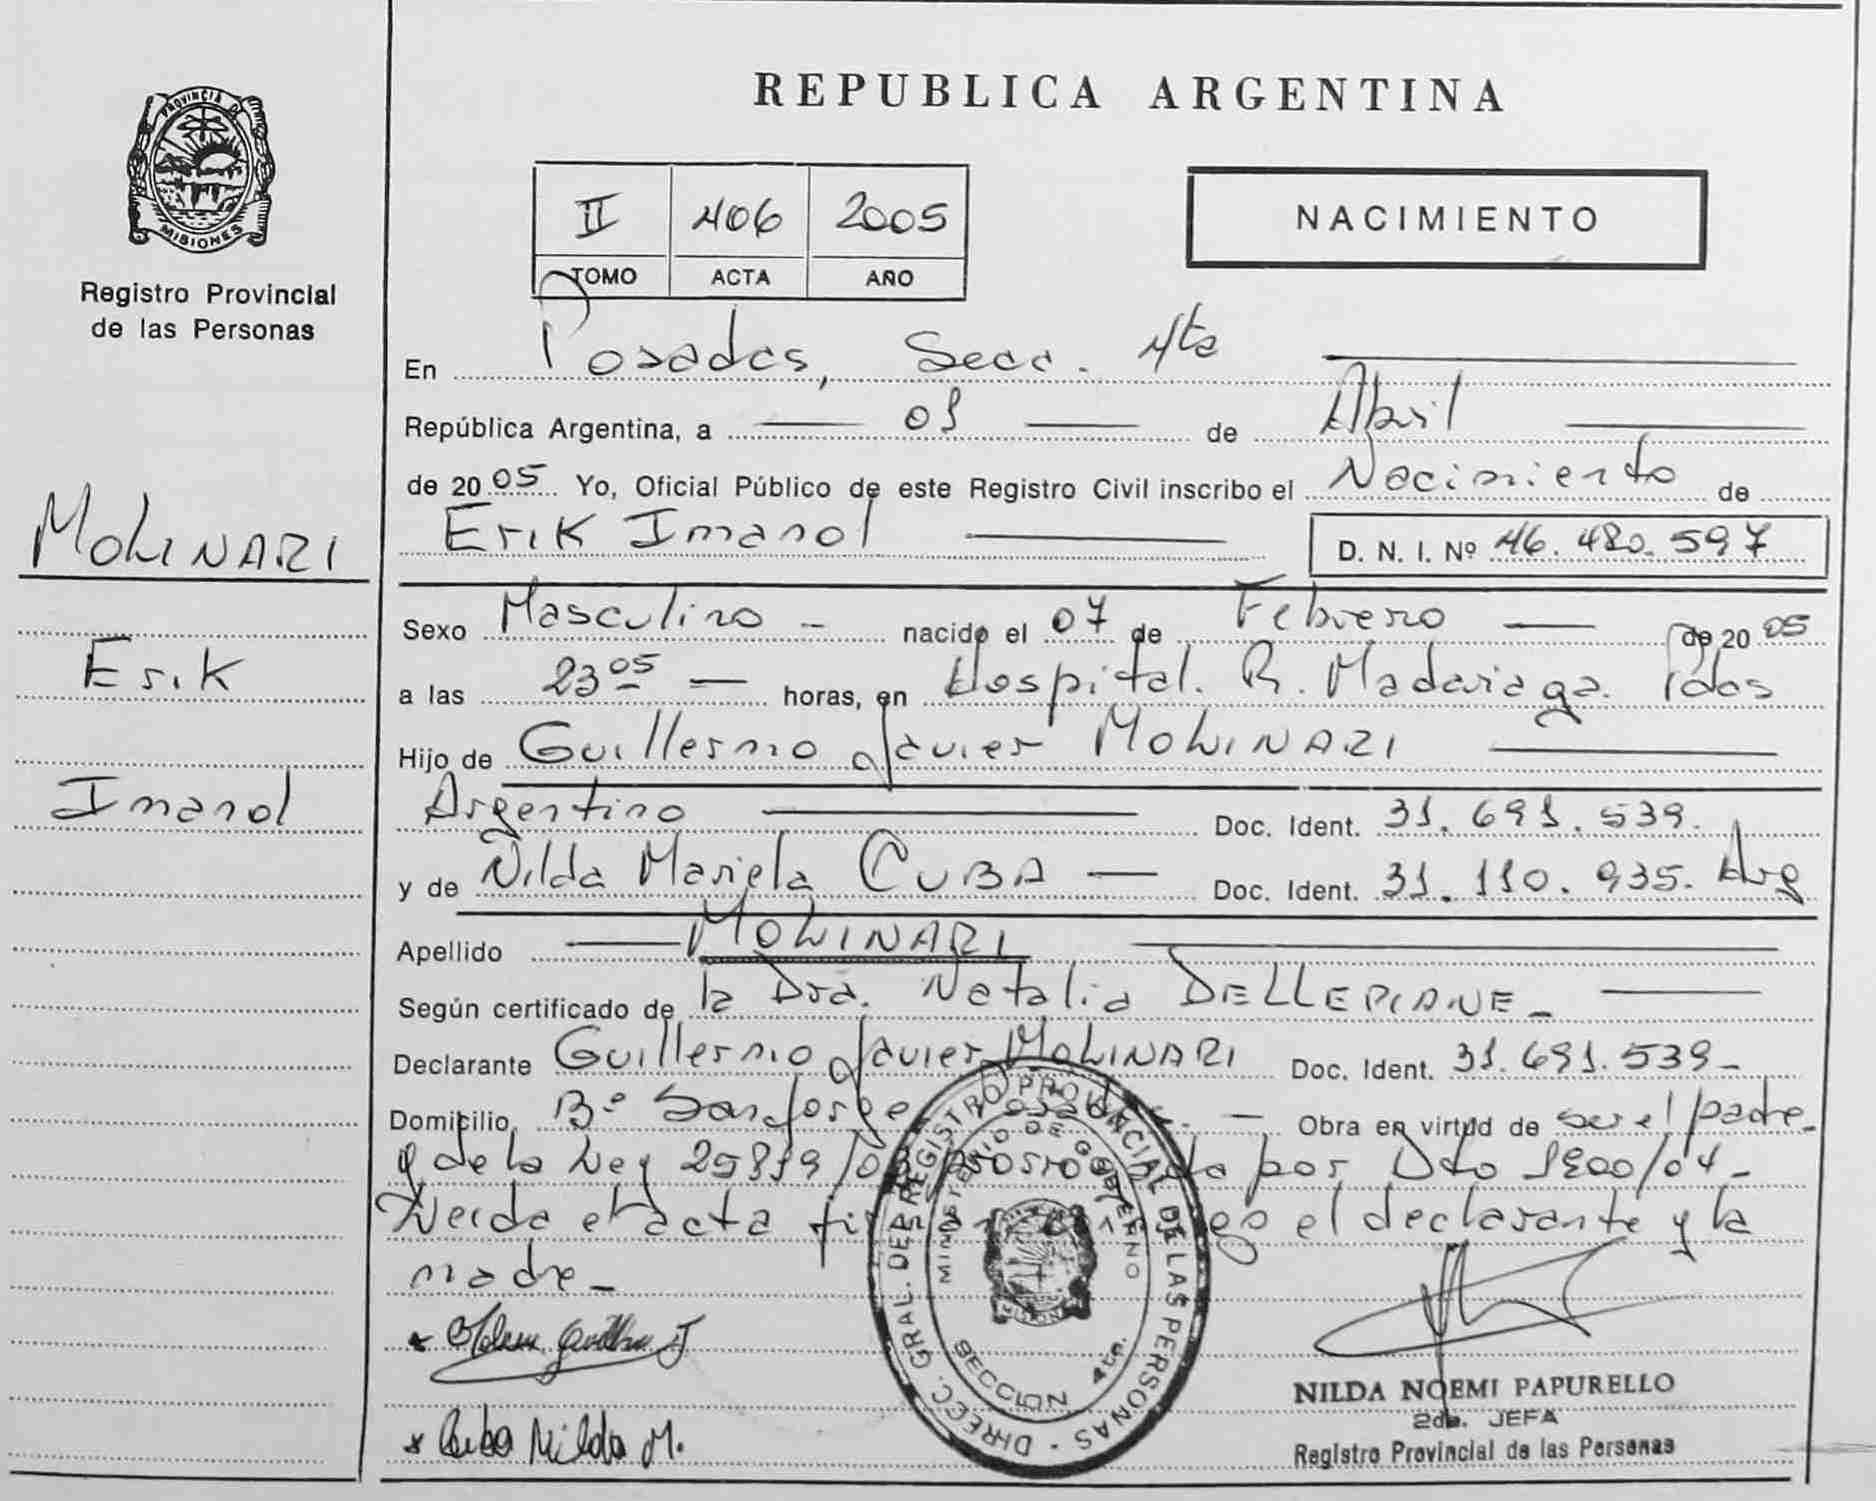 PROVINCIA DE
MISIONES
Registro Provincial
de las Personas
MOLINARI
Erik
Imanol
REPUBLICA ARGENTINA
II 406 2005
TOMO ACTA AÑO
NACIMIENTO
En Posadas, Secc. 4ta
República Argentina, a 01 de Abril
de 2005 Yo, Oficial Público de este Registro Civil inscribo el Nacimiento de
Erik Imanol D. N. I. Nº 46.480.597
Sexo Masculino - nacido el 07 de Febrero de 2005
a las 23 05 horas, en Hospital. R. Madariaga. Pdas
Hijo de Guillermo Javier MOLINARI
Argentino Doc. Ident. 31.691.539.
y de Nilda Mariela CUBA Doc. Ident. 31.110.935. Arg
Apellido MOLINARI
Según certificado de la Dra. Natalia DELLEPIANE -
Declarante Guillermo Javier MOLINARI Doc. Ident. 31.691.539-
Domicilio Bº San Jorge Posadas - Obra en virtud de ser el padre-
y de la Ley 25819/03 prorrogada por Dto 1900/04-
Leida el acta firman conmigo el declarante y la
madre-
Cuba Nilda M.
DIRECC. GRAL. DEL REGISTRO PROVINCIAL DE LAS PERSONAS
MINISTERIO DE GOBIERNO
SECCION 4ta.
NILDA NOEMI PAPURELLO
2da. JEFA
Registro Provincial de las Personas